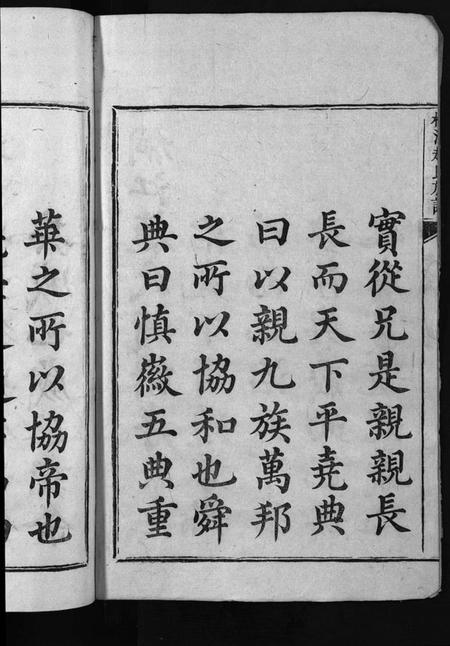 實從兄是親親長
長而天下平堯典
曰以親九族萬邦
之所以協和也舜
典曰慎徽五典重
華之所以協帝也